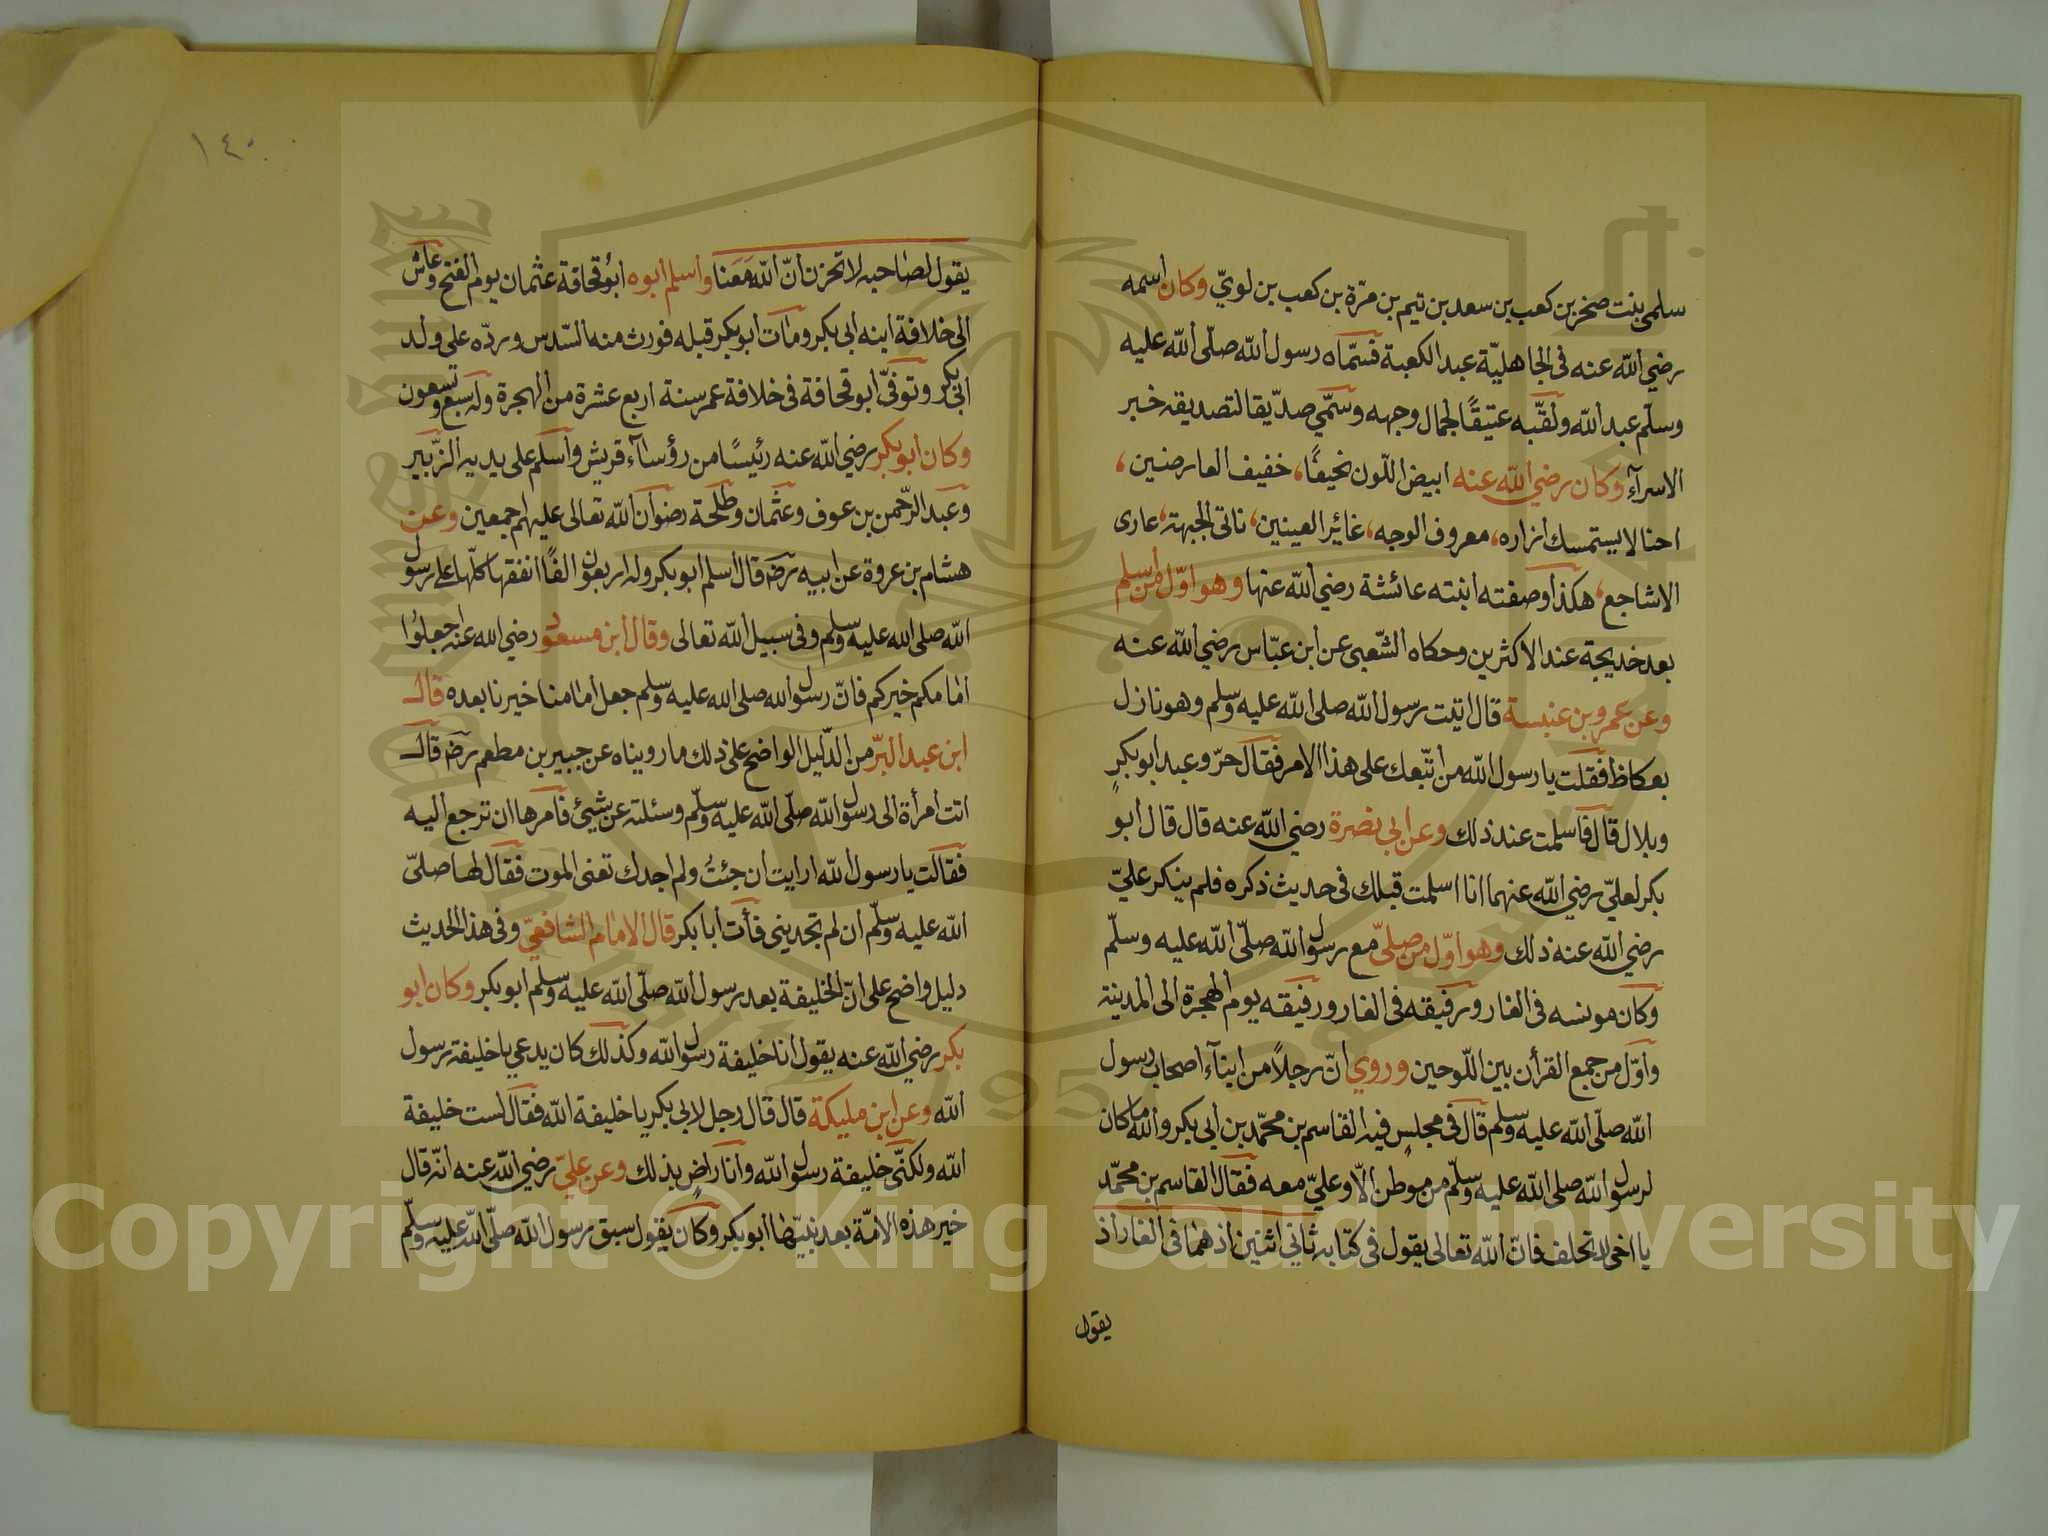 سلمى بنت صخر بن كعب بن سعد بن تيم بن مرّة بن كعب بن لويّ وكان أسمه
رضي الله عنه فى الجاهليّة عبد الكعبة فسمّاه رسول الله صلّى الله عليه
وسلّم عبد الله ولقّبه عتيقًا لجمال وجهه وسمّي صدّيقا لتصديقه خبر
الاسرآء وكان رضي الله عنه ابيض اللّون نحيفًا، خفيف العارضين،
احنا لايستمسك ازاره، معروف الوجه، غائر العينين، ناتى الجبهة، عارى
الاشاجع، هكذا وصفته ابنته عائشة رضي الله عنها وهو اوّل من أسلم
بعد خديجة عند الاكثرين وحكاه الشّعبى عن ابن عبّاس رضي الله عنه
وعن عمرو بن عنبسة قال اتيت رسول الله صلى الله عليه وسلم وهو نازل
بعكاظ فقلت يا رسول الله من اتّبعك على هذا الامر فقال حرّ وعبد ابو بكرٍ
وبلال قال فاسلمت عند ذلك وعن ابى نضرة رضي الله عنه قال قال ابو
بكر لعليّ رضي الله عنهما انا اسلمت قبلك فى حديث ذكره فلم ينكر عليّ
رضي الله عنه ذلك وهو اوّل من صلىّ مع رسول الله صلّى الله عليه وسلّم
وكان مونسه فى الغار ورفيقه فى الغار ورفيقه يوم الهجرة الى المدينة
وأوّل من جمع القرأن بين اللّوحين وروي انّ رجلاً من ابنآء اصحاب رسول
الله صلّى الله عليه وسلّم قال فى مجلس فيه القاسم بن محمّد بن أبى بكر والله ما كان
لرسول الله صلى الله عليه وسلّم من موطن الاّ وعليّ معه فقال القاسم بن محمّد
يا اخى لاتحلف فانّ الله تعالى يقول فى كتابه ثانى اثنين اذ هما فى الغار اذ
يقول
١٤٠
يقول لصاحبه لا تحزن انّ الله معنا واسلم ابوه ابو قحافة عثمان يوم الفتح وعاش
الى خلافة ابنه ابى بكر ومات ابو بكر قبله فورث منه السّدس وردّه على ولد
ابى بكر وتوفّى ابو قحافة فى خلافة عمر سنة اربع عشرة من الهجرة وله سبع وتسعون
وكان ابو بكر رضي الله عنه رئيسًا من رؤسآء قريش واسلم على يديه الزّبير
وعبد الرّحمن بن عوف وعثمان وطلحة رضوان الله تعالى عليهم اجمعين وعن
هشام بن عروة عن ابيه رضه قال اسلم ابو بكر وله اربعون الفًا انفقها كلّها على رسول
الله صلى الله عليه وسلم وفى سبيل الله تعالى وقال ابن مسعود رضي الله عنه اجعلوا
امامكم خيركم فانّ رسول الله صلى الله عليه وسلم جعل امامنا خيرنا بعده قال
ابن عبد البرّ من الدّليل الواضح على ذلك ما رويناه عن جبير بن مطعم رضه قال
اتت امرأة الى رسول الله صلّى الله عليه وسلّم وسئلته عن شيئ فامرها ان ترجع اليه
فقالت يا رسول الله ارايت ان جئتُ ولم اجدك تعنى الموت فقال لها صلىّ
الله عليه وسلّم ان لم تجدينى فأت ابا بكر قال الامام الشافعيّ وفى هذا الحديث
دليل واضح على انّ الخليفة بعد رسول الله صلّى الله عليه وسلّم ابو بكر وكان ابو
بكر رضي الله عنه يقول انا خليفة رسول الله وكذلك كان يدعي يا خليفة رسول
الله وعن ابن مليكة قال قال رجل لابى بكر يا خليفة الله فقال لست خليفة
الله ولكنّى خليفة رسول الله وانا راضٍ بذلك وعن عليّ رضي الله عنه انّه قال
خير هذه الامّة بعد نبيّها ابو بكر وكان يقول سبق رسول الله صلّى الله عليه وسلّم
Copyright © King Saud University
1957